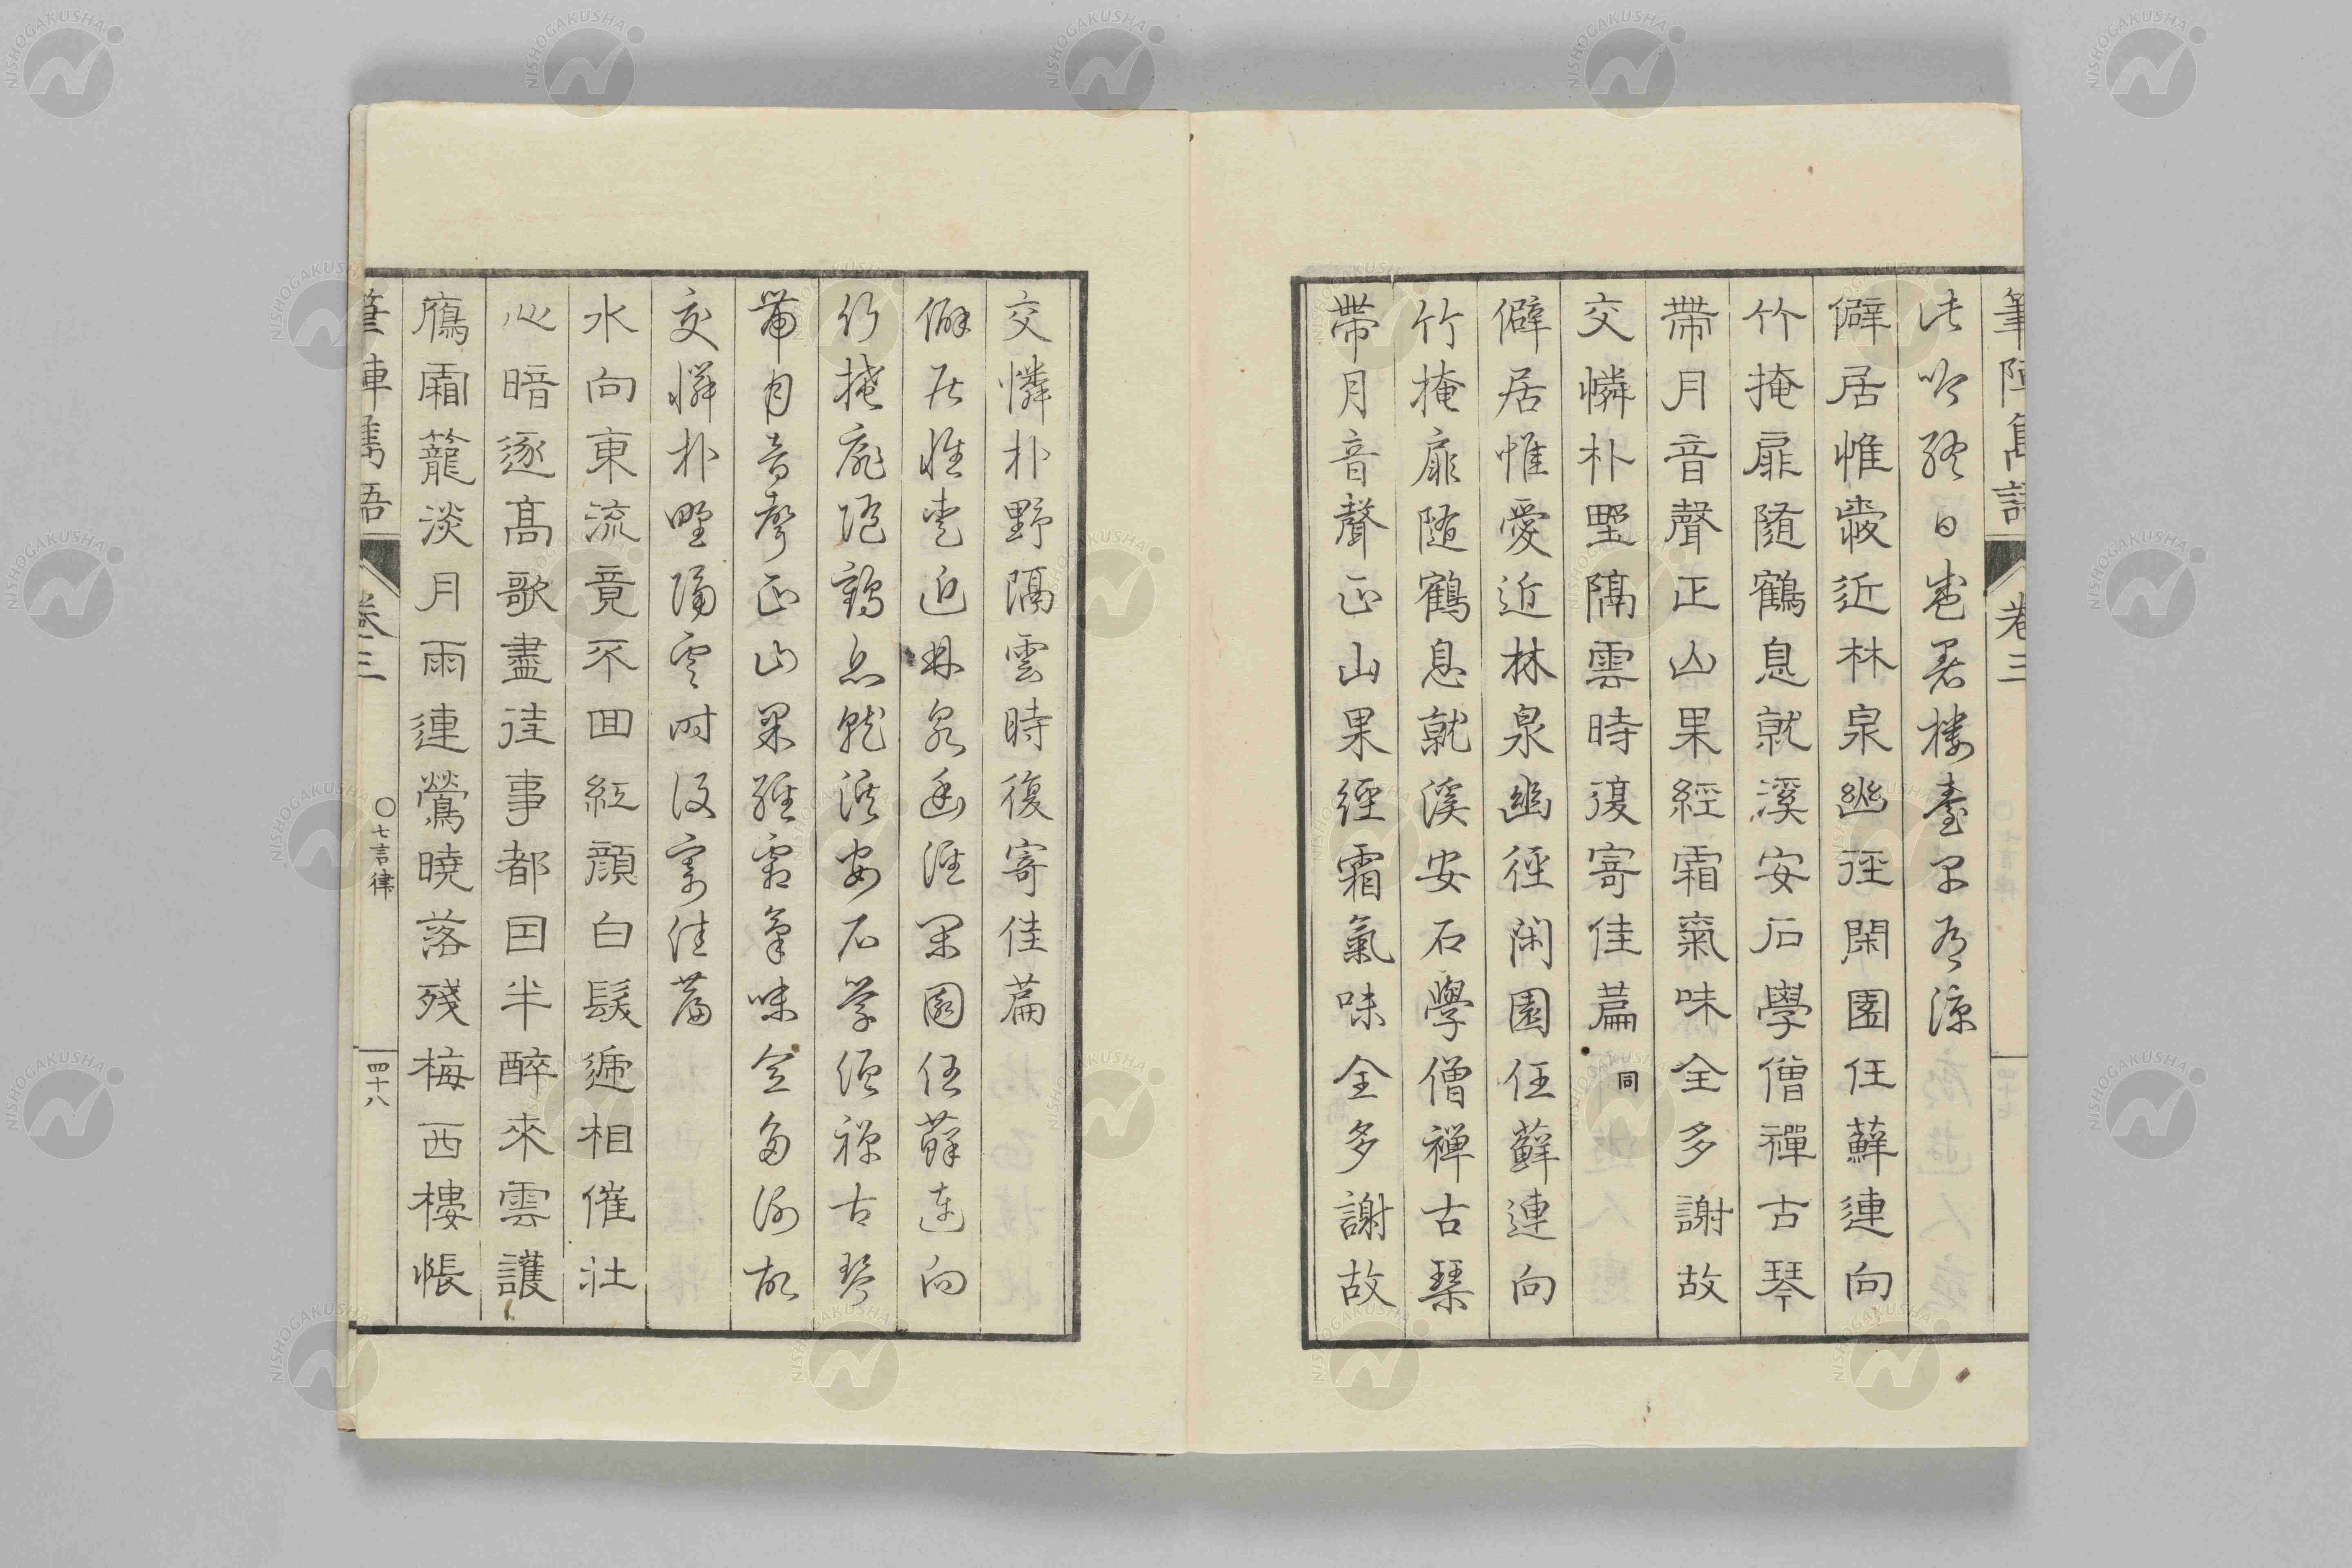 筆陣雋語 卷三
日樓臺早有涼
僻居惟愛近林泉幽徑閑園任蘚連向
竹掩扉隨鶴息就溪安石學僧禪古琴
帶月音聲正山果經霜氣味全多謝故
交憐朴野隔雲時復寄佳篇 同
僻居惟愛近林泉幽徑閑園任蘚連向
竹掩扉隨鶴息就溪安石學僧禪古琴
帶月音聲正山果經霜氣味全多謝故
交憐朴野隔雲時復寄佳篇
僻居惟愛近林泉幽徑閑園任蘚連向
竹掩扉隨鶴息就溪安石學僧禪古琴
帶月音聲正山果經霜氣味全多謝故
交憐朴野隔雲時復寄佳篇
水向東流竟不回紅顏白髮遞相催壯
心暗逐高歌盡往事都因半醉來雲護
鴈霜籠淡月雨連鶯曉落殘梅西樓悵
筆陣雋語 卷三 〇七言律 四十八
NISHOGAKUSHA